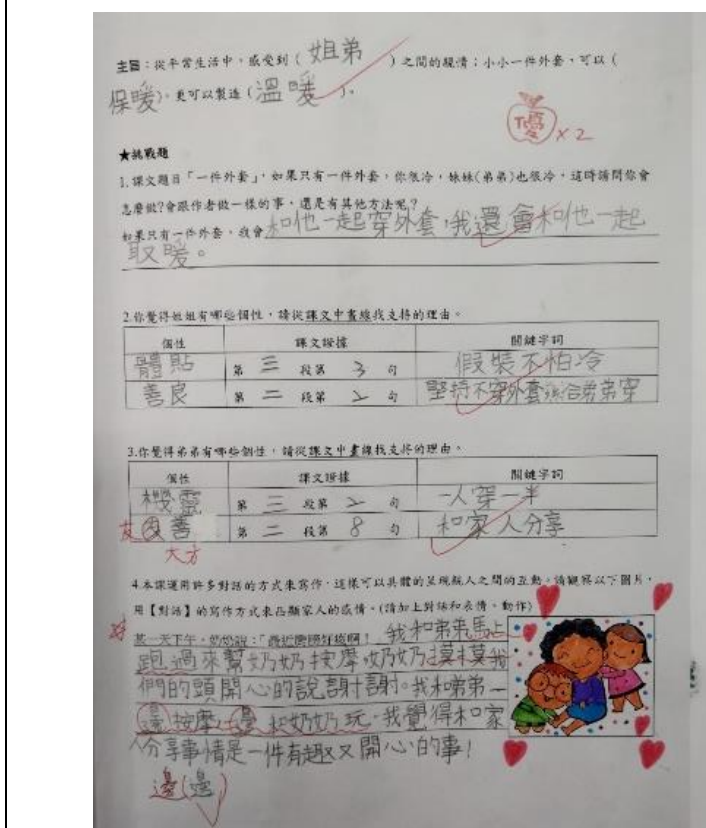 主旨：從平常生活中，感受到（姐弟）之間的親情；小小一件外套，可以（
保暖），更可以製造（溫暖）。
優 x2
★挑戰題
1.課文題目「一件外套」，如果只有一件外套，你很冷，妹妹(弟弟)也很冷，這時請問你會
怎麼做?會跟作者做一樣的事，還是有其他方法呢?
如果只有一件外套，我會和他一起穿外套，我還會和他一起
取暖。
2.你覺得姐姐有哪些個性，請從課文中畫線找支持的理由。
個性 課文證據 關鍵字詞
體貼 第 三 段第 3 句 假裝不怕冷
善良 第 二 段第 2 句 堅持不穿外套給弟弟穿
3.你覺得弟弟有哪些個性，請從課文中畫線找支持的理由。
個性 課文證據 關鍵字詞
機靈 第 三 段第 2 句 一人穿一半
友善 第 二 段第 8 句 和家人分享
大方
4.本課運用許多對話的方式來寫作，這樣可以具體的呈現親人之間的互動。請觀察以下圖片，
用【對話】的寫作方式來凸顯家人的感情。(請加上對話和表情、動作)
某一天下午，奶奶說：「最近腰師好痠啊！我和弟弟馬上
跑過來幫奶奶按摩奶奶摸摸我
們的頭開心的說謝謝。我和弟弟一
邊按摩一邊和奶奶玩，我覺得和家
人分享事情是一件有趣又開心的事！
邊(邊)